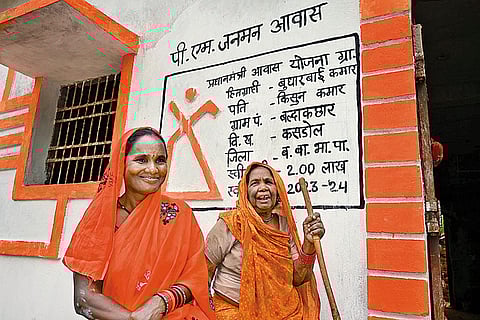 पी. एम. जनमन आवास
प्रधानमंत्री आवास योजना ग्रा.
हितग्राही - बुधारबाई कमार
पति - किसुन कमार
ग्राम पं. - बल्दाकछार
वि. ख. - कसडोल
जिला - ब. बा. भा. पा.
- 2.00 लाख
2023-24